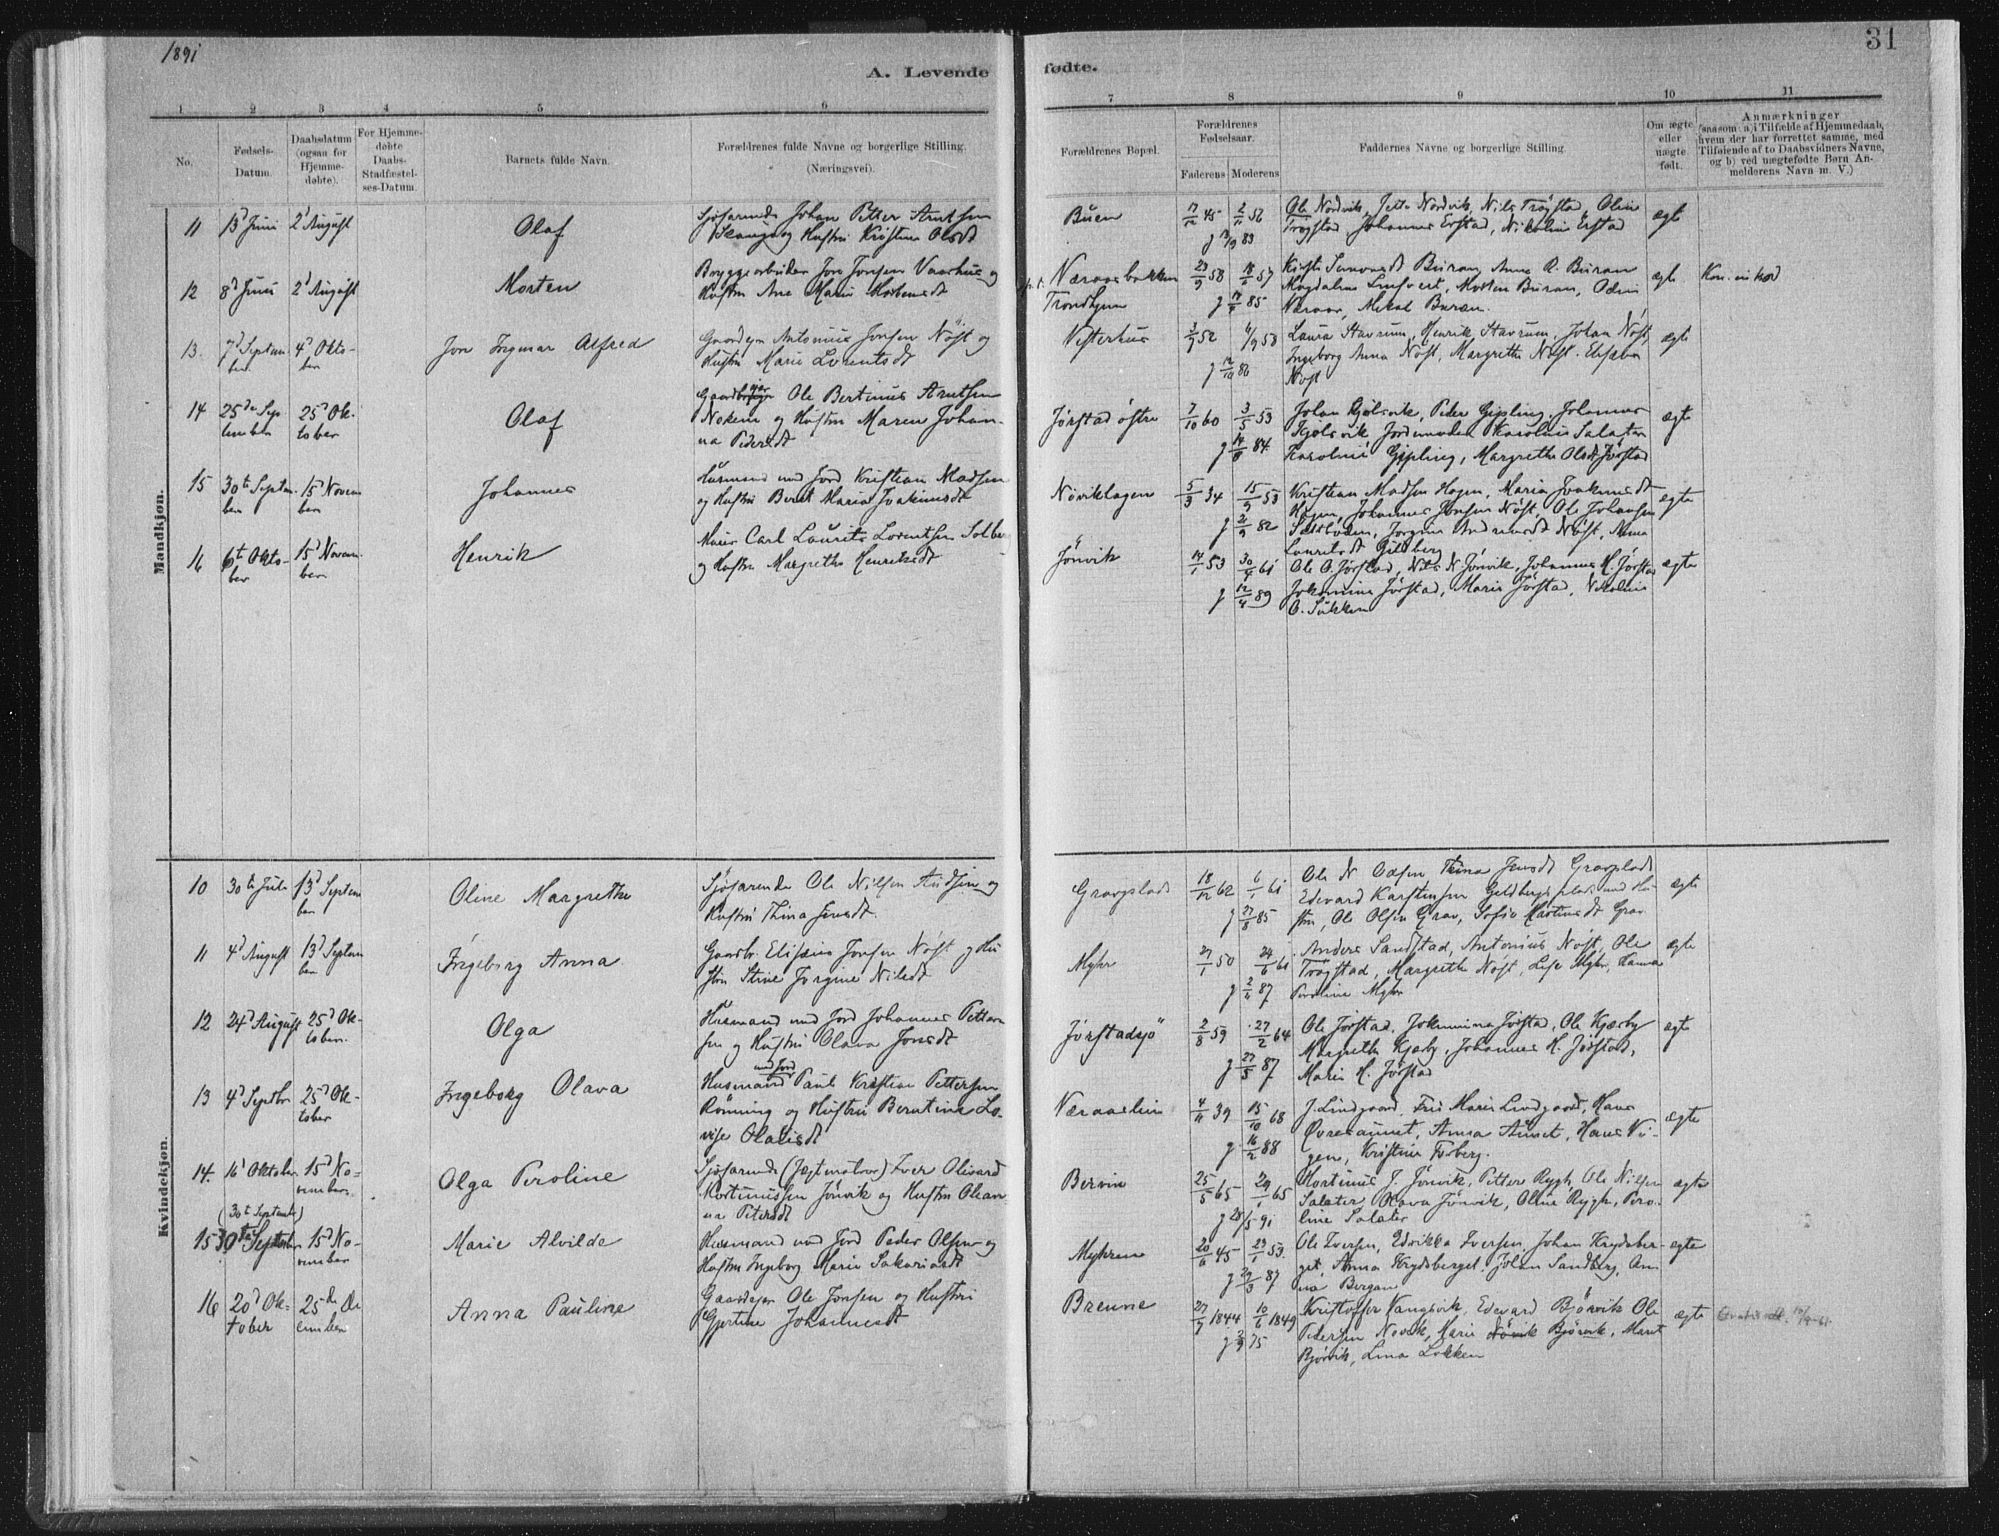 1891
31
A. Levende
fødte.
1 2 3 4 5 6
7 8 9 10 11
No.
Fødsels-
Datum.
Daabsdatum
(ogsaa for
Hjemme-
døbte).
For Hjemme-
døbte
Daabs-
Stadfæstel-
ses-Datum.
Barnets fulde Navn.
Forældrenes fulde Navne og borgerlige Stilling.
(Næringsvei).
Forældrenes Bopæl.
Forældrenes
Fødselsaar.
Faderens Moderens
Faddernes Navne og borgerlige Stilling.
Om ægte
eller
uægte
født.
Anmærkninger
(saasom: a) i Tilfælde af Hjemmedaab,
hvem der har forrettet samme, med
Tilføiende af to Daabsvidners Navne,
og b) ved uægtefødte Børn An-
melderens Navn m. V.)
Mandkjøn.
11 13d Juni 2d August
Olaf
Sjøfarende Johan Petter Arntsen
og Hustru Kristine Olsdt
Buen
17/12 45 2/11 52
Ole Nordvik, Jetta Nordvik, Nils Trøgstad, Oline
Trøgstad, Johannes Erstad, Nikoline Erstad
ægte
12 8d Juni 2d August
Morten
Bryggearbeider Jon Jonsen Vaarhus og
Hustru Ane Marie Mortensdt
Næraasbakken
Trondhjem
23/9 58 18/6 57
g 17/7 85
Magdalena Lunqvert, Morten Buran, Odin
Næraas, Mekal Buran.
ægte
13. 7d Septem-
ber
4d Okto-
ber
Jon Ingmar Alfred
Gaardejer Antonius Jonsen Nøst og
Hustru Marie Lorentsdt
Vesterhus
3/9 52 4/9 58
g 12/10 86
Laura Stavrum, Henrik Stavrum, Johan Nøst,
Ingeborg Anna Nøst, Margrethe Nøst, Elisabet
Nøst
ægte
14 25de Sep
tember
25d Ok-
tober
Olaf
Ole Bertinus Arntsen
og Hustru Maren Johan-
na Pedersdt
Jørstad østre
7/10 60 3/5 53
g 84
Johan Gjølsvik, Peder Gipling, Johannes
Gjølsvik, Jordemoder Karoline Salater
Karoline Gipling, Margrethe Olsdt Jørstad
ægte
15 30te Septem-
ber
15d Novem
ber
Johannes
Husmand med Jord Kristian Madsen
og Hustru Berit Maria Joakimsdt
Nøviklagen
5/3 34 15/9 53
g 2/9 82
Kristian Madsen Hagen, Maria Joakimsdt
Hagen, Johannes Jonsen Nøst, Ole Johansen
Saltboden, Jorgine Andreasdt Nøst, Anna
Lauritsdt Gildberg
ægte
16 6te Okto-
ber
15d Novem-
ber
Henrik
Maler Carl Laurits Lorentsen Solberg
og Hustru Margrethe Henriksdt
Jønvik
14/1 53 30/4 61
g 12/4 89
Ole O. Jørstad, Nils N. Jønvik, Johannes H. Jørstad
Johannina Jørstad, Marie Jørstad, Nikoline
O. Sukken
ægte
Kvindekjøn.
10 30te Juli 13d Septem
ber
Oline Margrethe
Sjøfarende Ole Nilsen Aidsen og
Hustru Thina Jensdt.
Gravplads
18/12 62 6/1 61
g 27/8 85
Ole N. Oasen Thina Jensdt Gravplads
Edevard Karstensen Geldbergs plads med Hu-
stru, Ole Olsen Grav, Sofie Martinsdt Grav
ægte
11 4d August 13d Septem
ber
Ingeborg Anna
Gaardbr. Elisæus Jonsen Nøst og Hu
stru Stine Jorgine Nilsdt
Myhr
27/1 50 24/6 61
g 2/11 87
Anders Sandstad, Antonius Nøst, Ole
Trøgstad, Margrethe Nøst, Lise Myhr, Hanna
Peroline Myhr
ægte
12 24d August 25d Ok-
tober.
Olga
Husmand med Jord Johannes Petter-
sen og Hustru Olava Jonsdt
Jørstadsjø
2/8 59 27/2 64
g 27/5 87
Ole Jørstad, Johannina Jørstad, Ole Kjærby
Margrethe Kjærby, Johannes H. Jørstad,
Marie H. Jørstad
ægte
13 4d Septbr 25d Ok-
tober
Ingeborg Olava
med Jord
Husmand Paul Kristian Pettersen
Rønning og Hustru Berntine Lo-
vise Olausdt
Næraaslien
4/11 39 15/10 68
g 16/2 88
J. Lindgaard, Frue Marie Lindgaard, Hans
Øvreaunet, Anna Aunet, Hans Vi-
gen, Kristine Forberg.
ægte
14. 16 Oktober 15d No-
vember
Olga Peroline
Sjøfarende (Jagtmatros) Iver Olivard
Mortinussen Jønvik og Hustru Olean-
na Petersdt
Bervin
25/5 65 29/1 65
g 28/5 91
Mortinus J. Jønvik, Petter Rygh, Ole Nilsen
Salater, Olava Jønvik, Oline Rygh, Pero-
line Salater
ægte
(30te Septemb)
15 30te Septem 15d No-
vember
Marie Alvilde
Husmand med Jord Peder Olsen og
Hustru Ingeborg Marie Sakariasdt
Myhren
20/6 45 23/1 53.
g 29/3 87
Ole Iversen, Edvikka Iversen, Johan Krydsber-
get, Anna Krydsberget, Johan Sandberg, An-
na Bergan
ægte
16 20d Ok-
tober
25de De
cember
Anna Pauline
Gaardejer Ole Jonsen og Hustru
Gjertine Johannesdt
Brenne
27/7 1844 10/6 1849
g 75
Kristoffer Vangsvik, Edevard Bjørvik, Ole
Pedersen Novik, Marie Bjørvik, Maret
Bjørvik, Lina Lokken
ægte